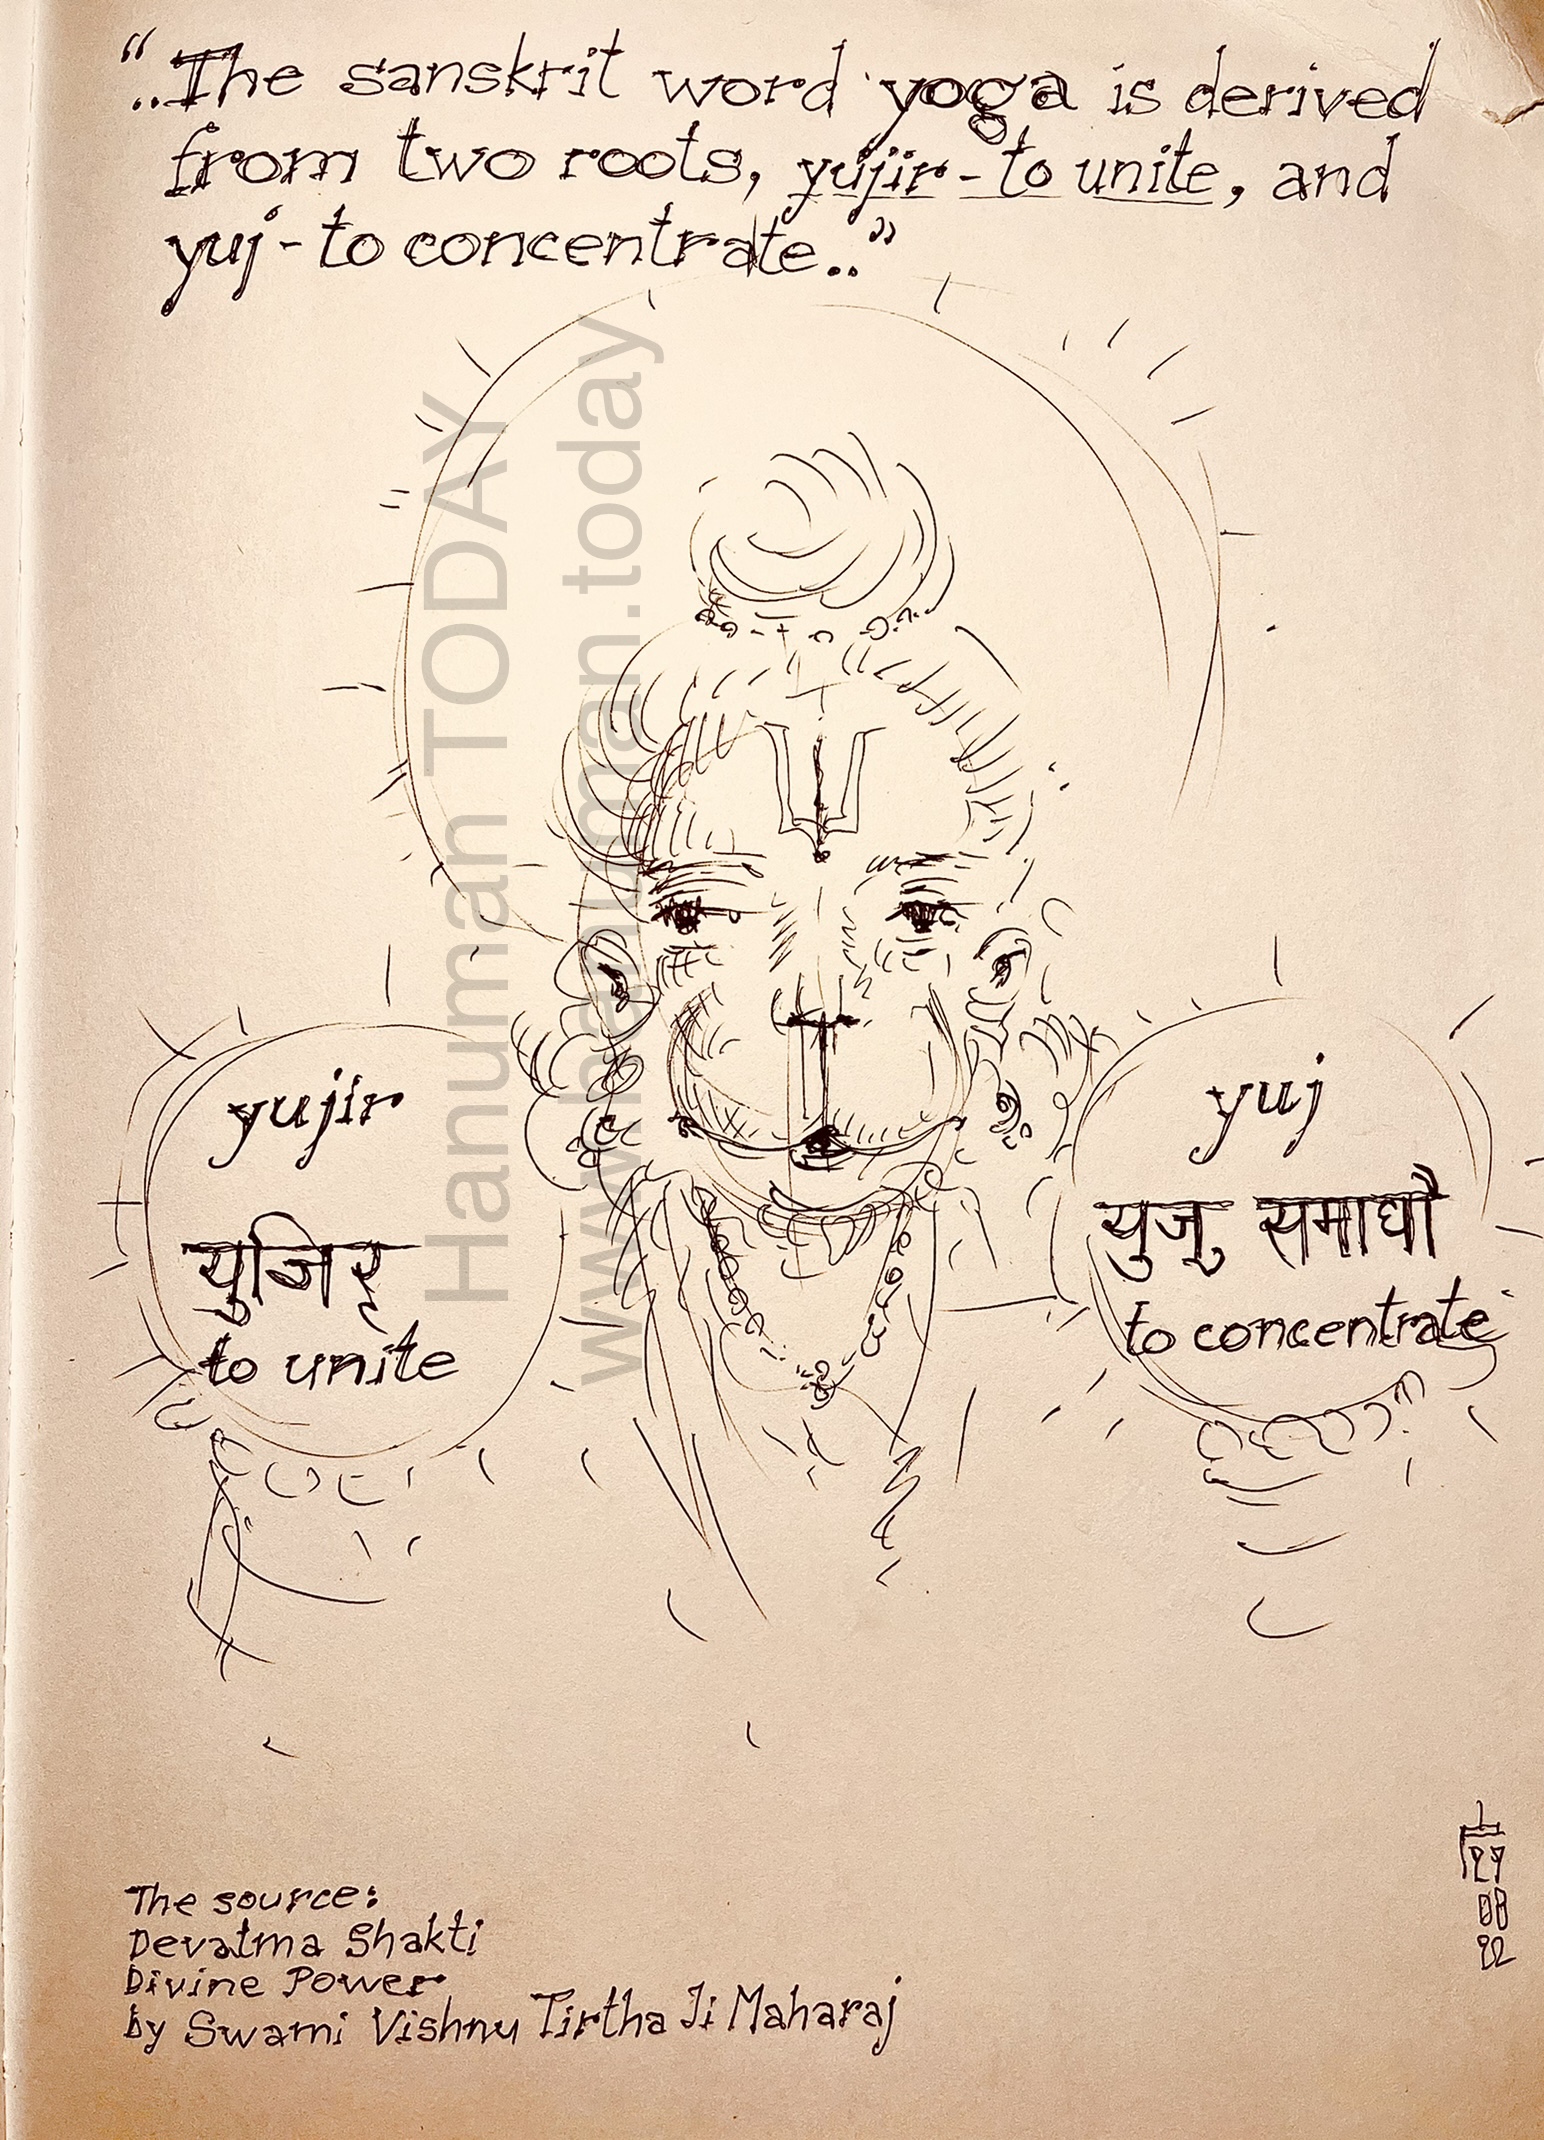 “..The sanskrit word yoga is derived
from two roots, yujir - to unite, and
yuj - to concentrate..”
Hanuman TODAY
www.hanuman.today
yujir
युजिर्
to unite
yuj
युज् समाधौ
to concentrate
The source:
Devatma Shakti
Divine Power
by Swami Vishnu Tirtha Ji Maharaj
08